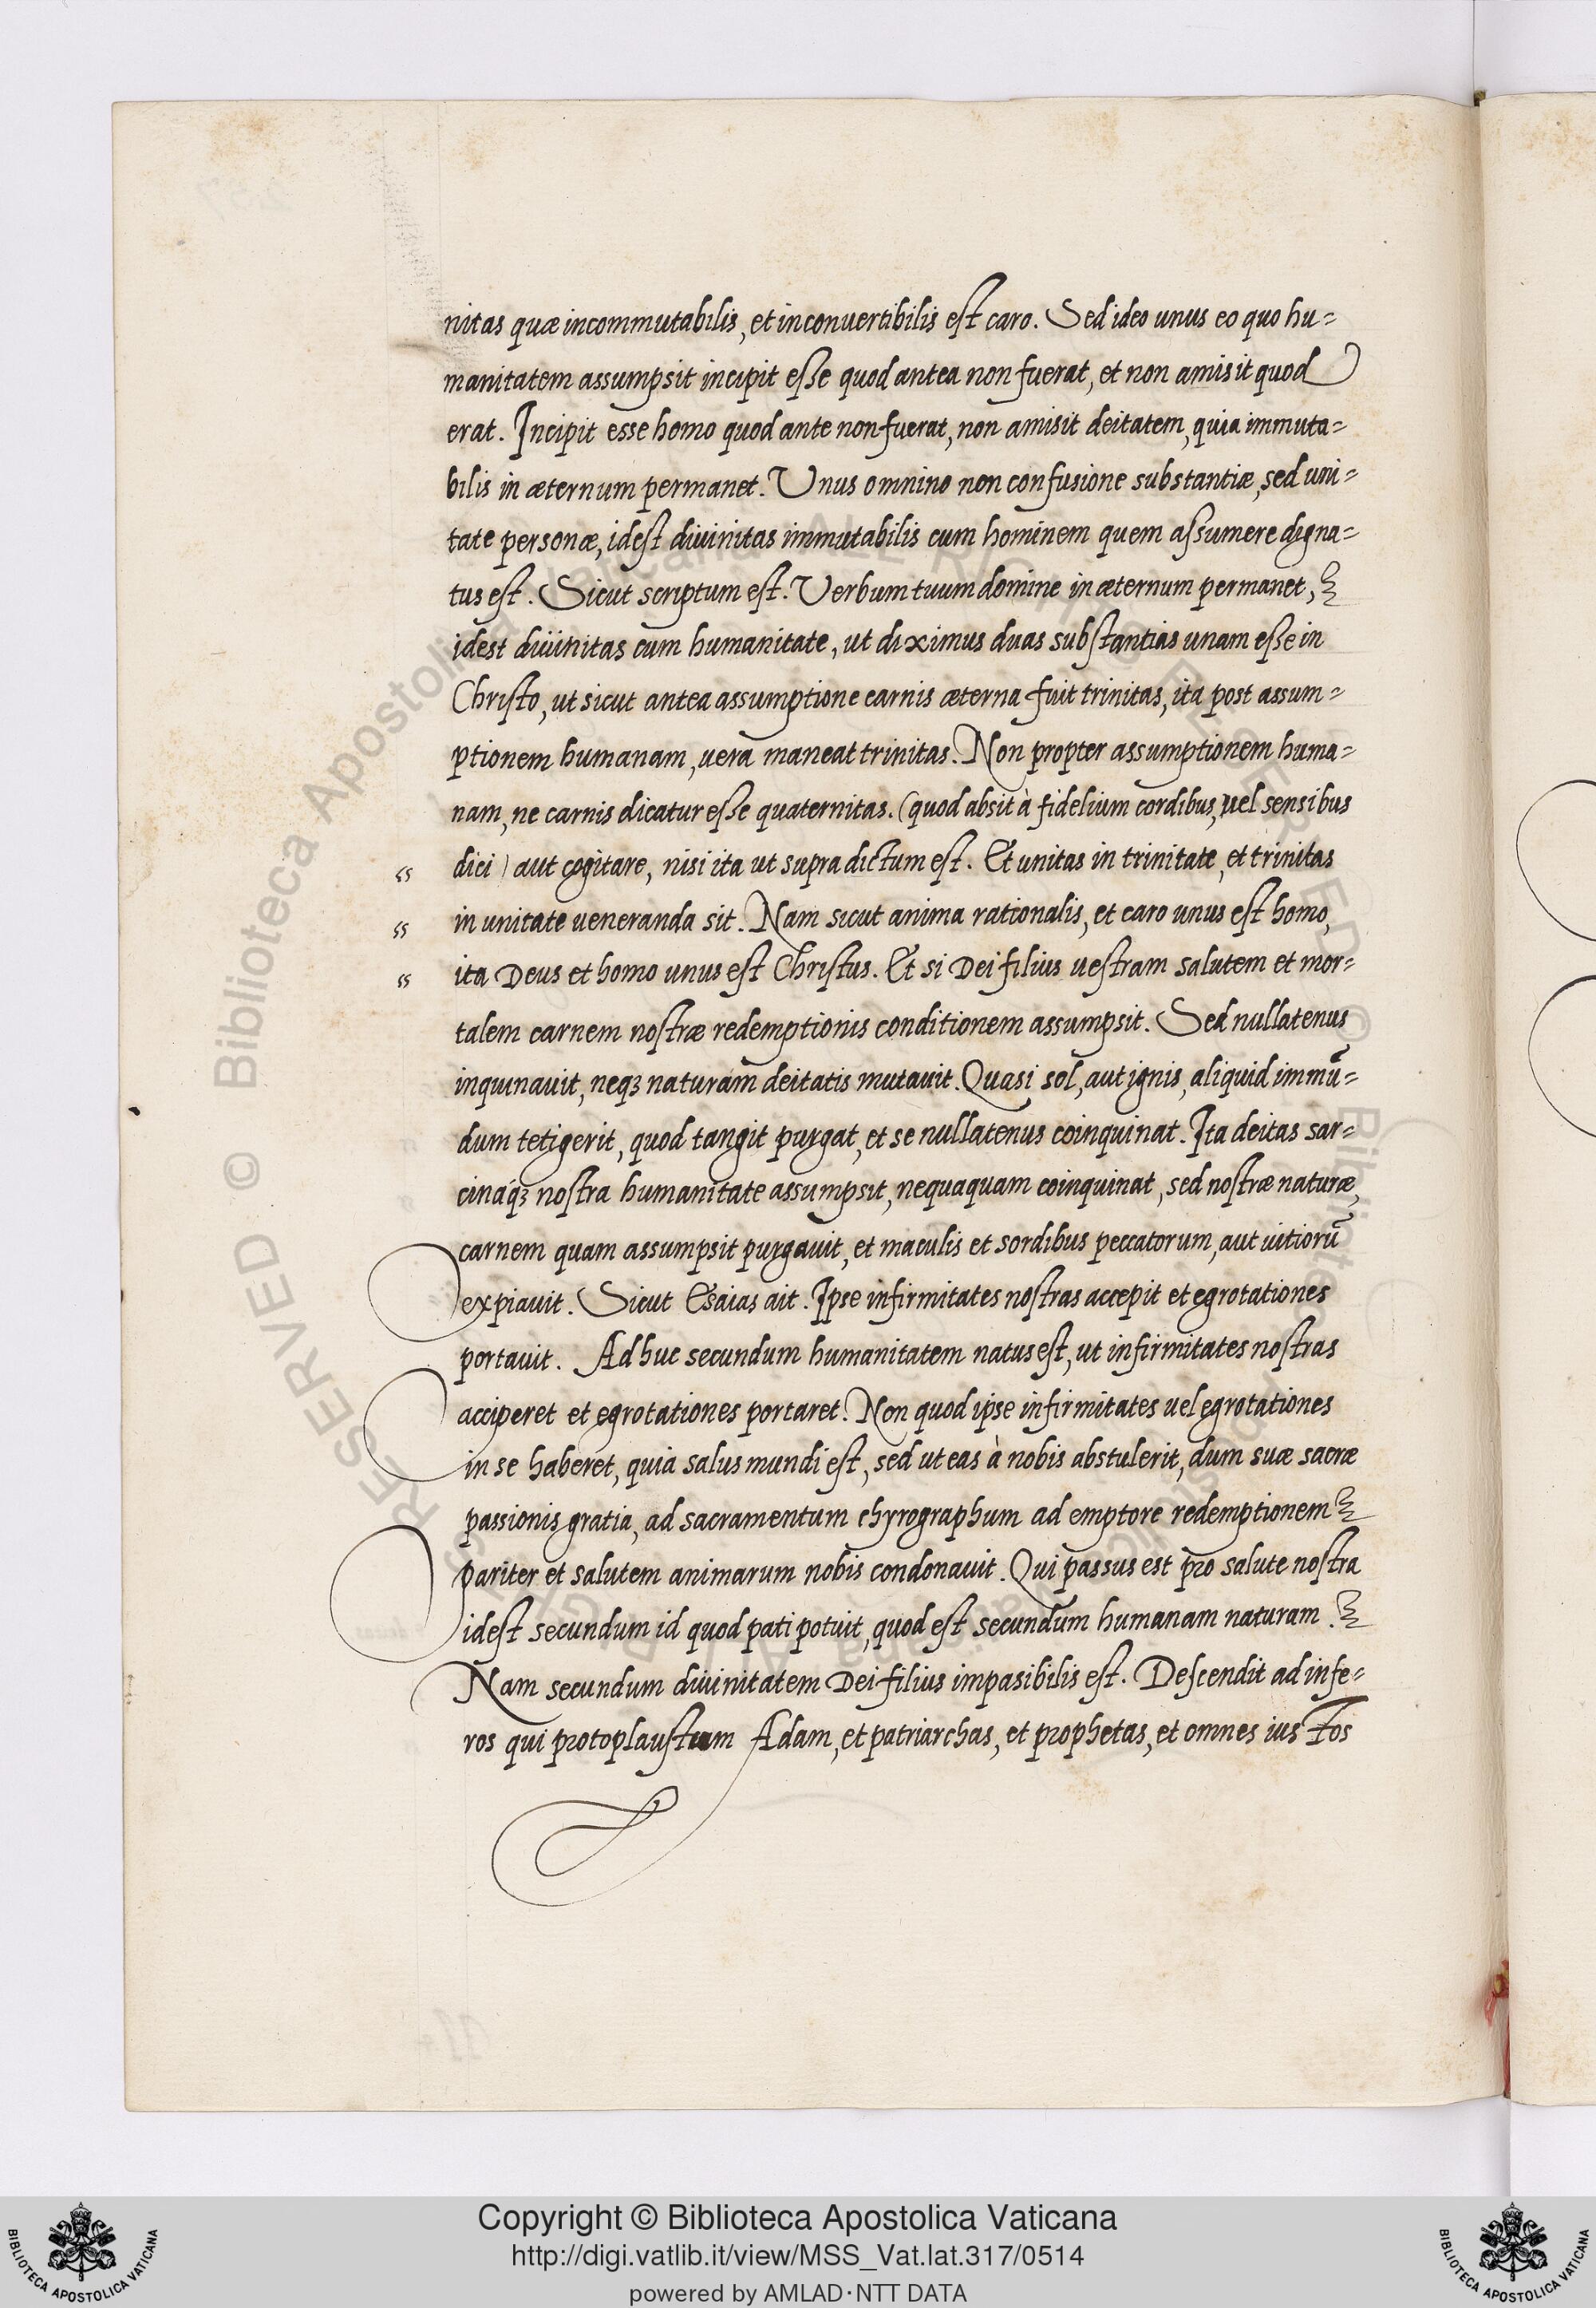 nitas quæ incommutabilis, et inconuertibilis est caro. Sed ideo unus eo quo hu=
manitatem assumpsit incipit eße quod antea non fuerat, et non amisit quod
erat. Incipit esse homo quod ante non fuerat, non amisit deitatem, quia immuta=
bilis in æternum permanet. Unus omnino non confusione substantiæ, sed uni=
tate personæ, idest diuinitas immutabilis cum hominem quem assumere digna=
tus est. Sicut scriptum est. Verbum tuum domine in æternum permanet,
idest diuinitas cum humanitate, ut diximus duas substantias unam eße in
Christo, ut sicut antea assumptione carnis æterna fuit trinitas, ita post assum=
ptionem humanam, uera maneat trinitas. Non propter assumptionem huma=
nam, ne carnis dicatur eße quaternitas. (quod absit à fidelium cordibus, uel sensibus
“ dici) aut cogitare, nisi ita ut supra dictum est. Et unitas in trinitate, et trinitas
“ in unitate ueneranda sit. Nam sicut anima rationalis, et caro unus est homo,
“ ita Deus et homo unus est Christus. Et si Dei filius uestram salutem et mor=
talem carnem nostræ redemptionis conditionem assumpsit. Sed nullatenus
inquinauit, neqꝫ naturam deitatis mutauit. Quasi sol, aut ignis, aliquid immū=
dum tetigerit, quod tangit purgat, et se nullatenus coinquinat. Ita deitas sar=
cináqꝫ nostra humanitate assumpsit, nequaquam coinquinat, sed nostræ naturæ,
carnem quam assumpsit purgauit, et maculis et sordibus peccatorum, aut uitiorū
expiauit. Sicut Esaias ait. Ipse infirmitates nostras accepit et egrotationes
portauit. Ad huc secundum humanitatem natus est, ut infirmitates nostras
acciperet et egrotationes portaret. Non quod ipse infirmitates uel egrotationes
in se haberet, quia salus mundi est, sed ut eas à nobis abstulerit, dum suæ sacræ
passionis gratia, ad sacramentum chyrographum ad emptore redemptionem
pariter et salutem animarum nobis condonauit. Qui passus est pro salute nostra
idest secundum id quod pati potuit, quod est secundum humanam naturam.
Nam secundum diuinitatem Dei filius impasibilis est. Descendit ad infe=
ros qui protoplaustum Adam, et patriarchas, et prophetas, et omnes iustos
© Biblioteca Apostolica Vaticana
Copyright © Biblioteca Apostolica Vaticana
http://digi.vatlib.it/view/MSS_Vat.lat.317/0514
powered by AMLAD·NTT DATA
BIBLIOTECA APOSTOLICA VATICANA
BIBLIOTECA APOSTOLICA VATICANA